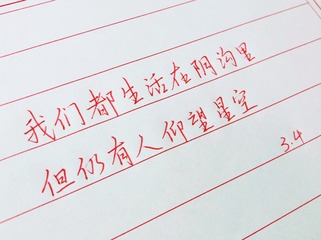 我们都生活在阴沟里
但仍有人仰望星空
3.4